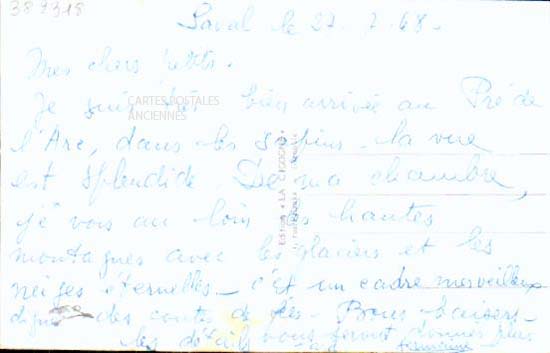 382318
Laval le 27-7-68-
Mes chers petits.
Je suis très bien arrivée au Pré de
l'Arc, dans les sapins. la vue
est splendide. De ma chambre,
je vois au loin les hautes
montagnes avec les glaciers et les
neiges éternelles_ c'est un cadre merveilleux
digne des contes de fées_ Bons baisers_
les détails vous seront donnés plus
CARTES POSTALES
ANCIENNES
Edition « LA CIGOGNE »